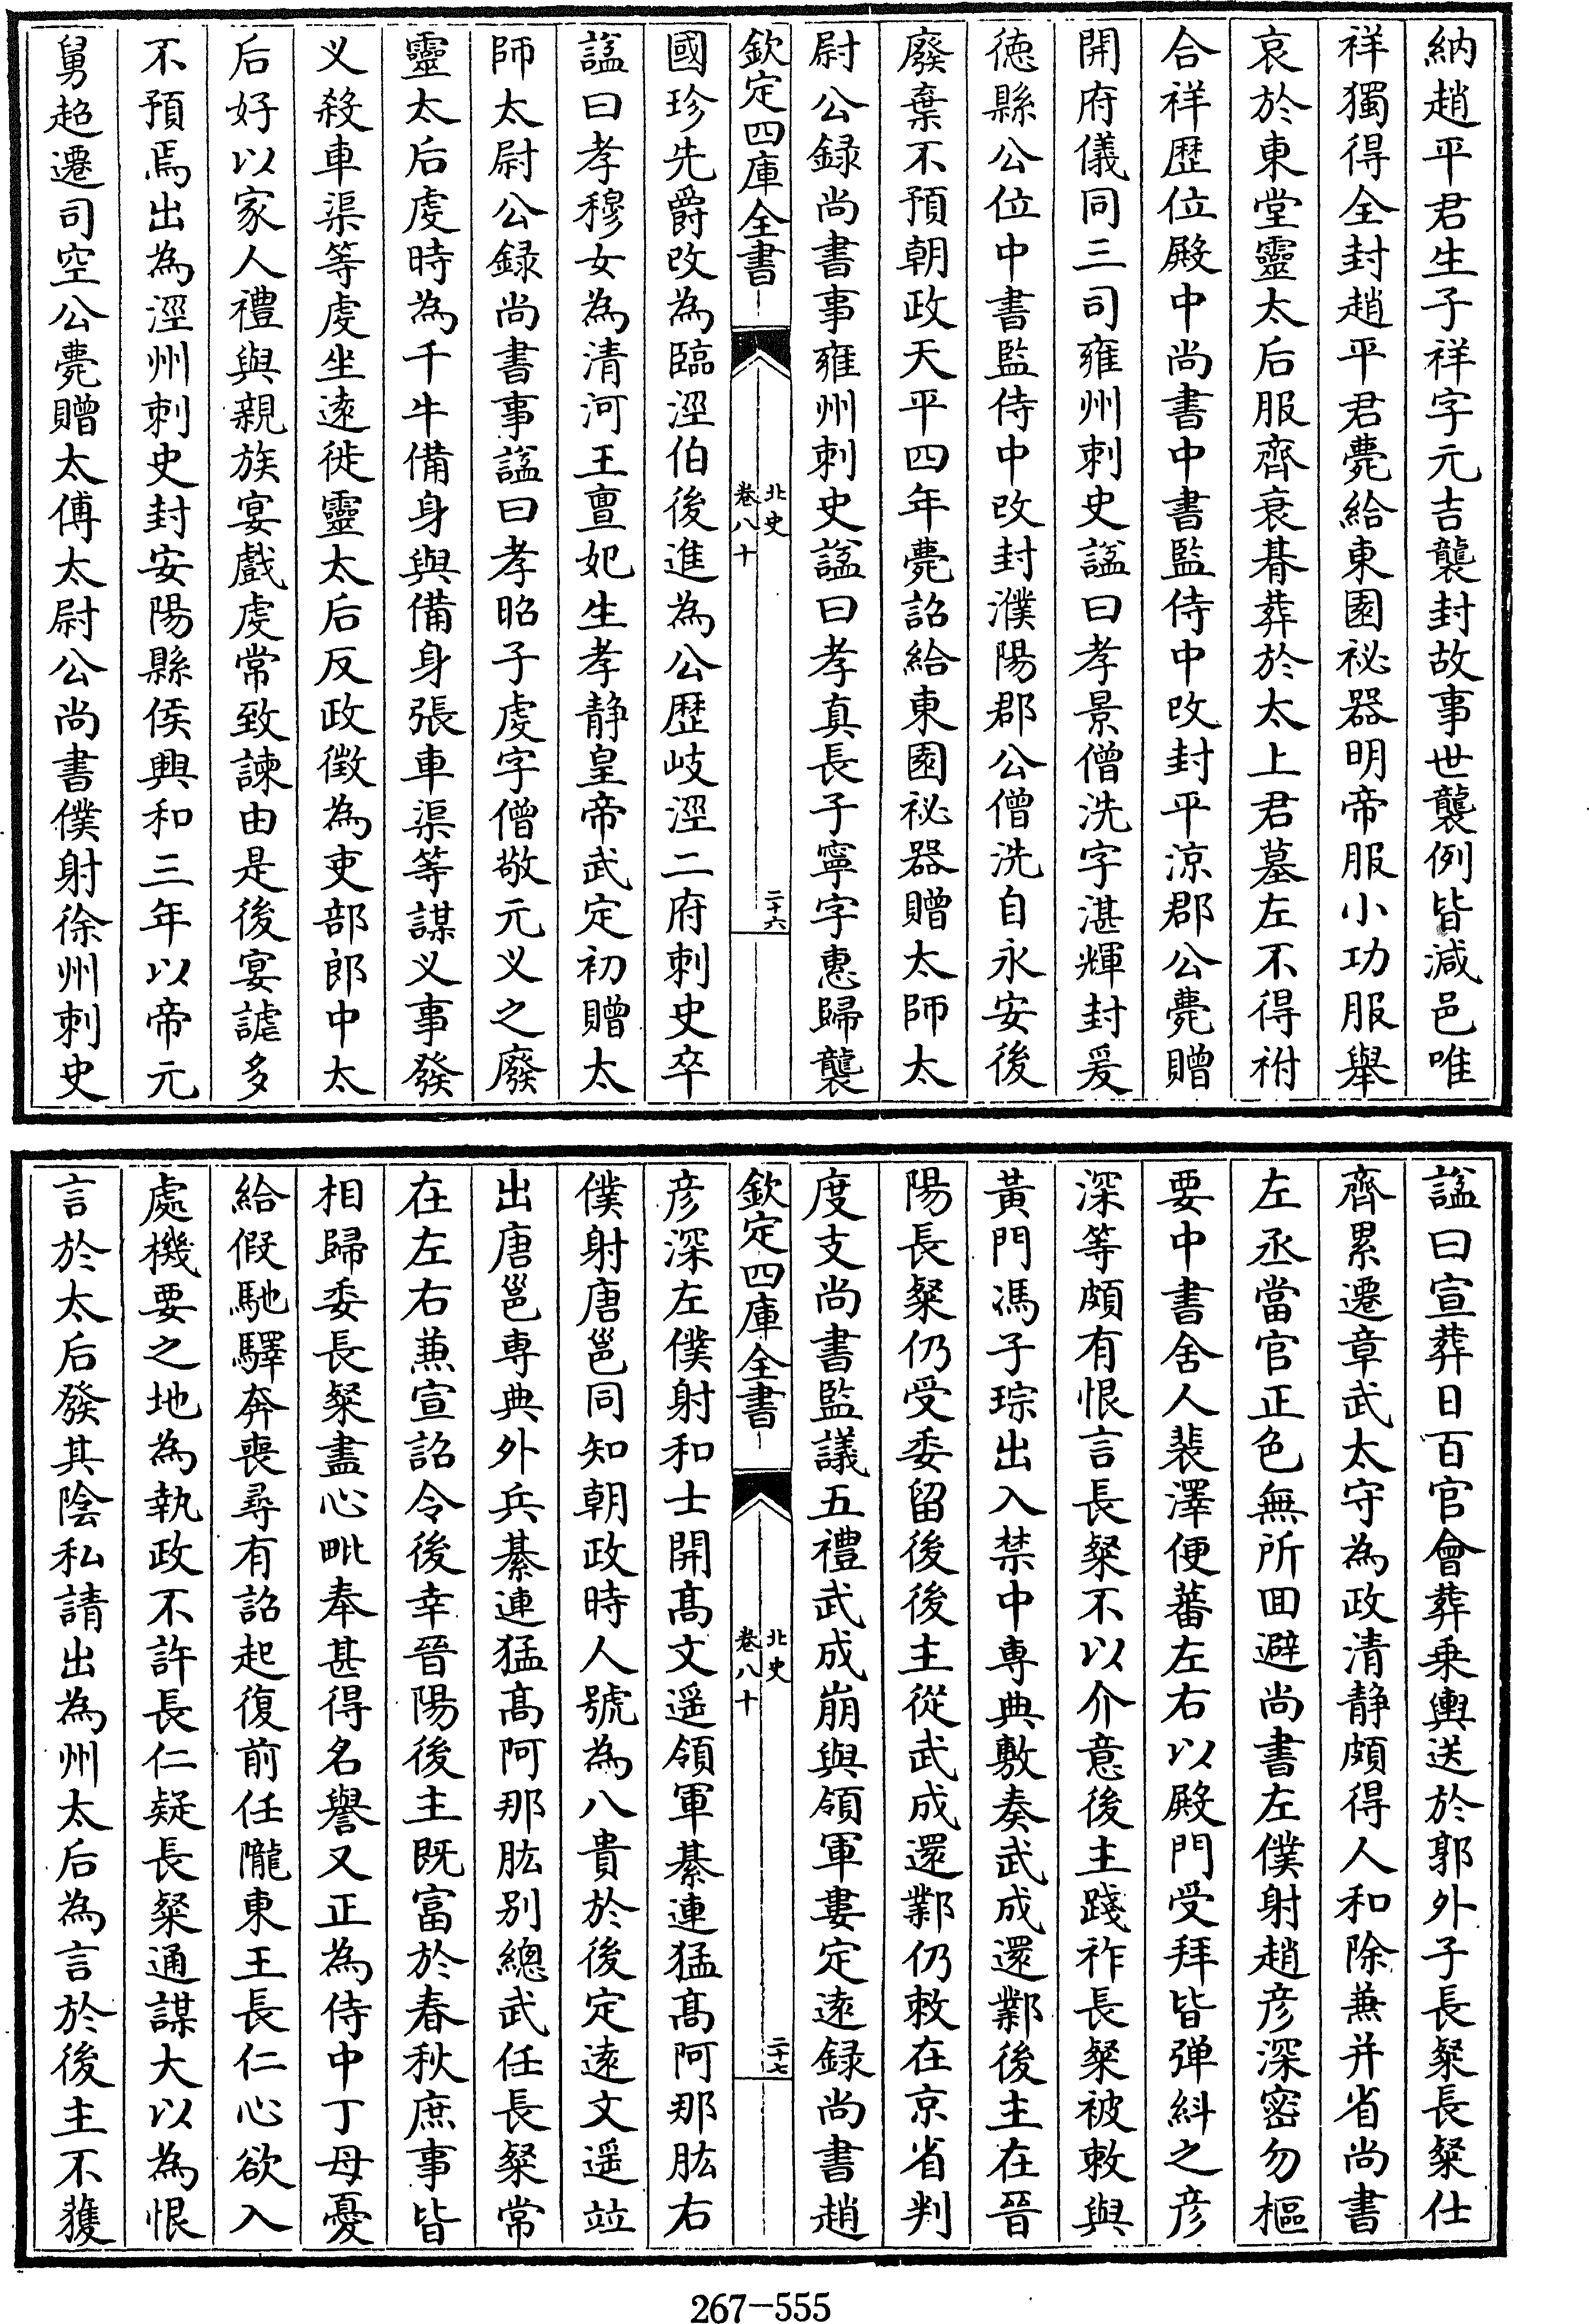 納趙平君生子祥字元吉襲封故事世襲例皆減邑唯
祥獨得全封趙平君薨給東園祕器明帝服小功服舉
哀於東堂靈太后服齊衰朞葬於太上君墓左不得祔
合祥歴位殿中尚書中書監侍中改封平涼郡公薨贈
開府儀同三司雍州刺史諡曰孝景僧洗字湛輝封爰
徳縣公位中書監侍中改封濮陽郡公僧洗自永安後
廢棄不預朝政天平四年薨詔給東園祕器贈太師太
尉公録尚書事雍州刺史諡曰孝真長子寧字惠歸襲
欽定四庫全書
北史
卷八十
二十六
國珍先爵改為臨涇伯後進為公歴岐涇二府刺史卒
諡曰孝穆女為清河王亶妃生孝静皇帝武定初贈太
師太尉公録尚書事諡曰孝昭子虔字僧敬元义之廢
靈太后虔時為千牛備身與備身張車渠等謀义事發
义殺車渠等虔坐逺徙靈太后反政徴為吏部郎中太
后好以家人禮與親族宴戲虔常致諫由是後宴謔多
不預焉出為涇州刺史封安陽縣侯興和三年以帝元
舅超遷司空公薨贈太傅太尉公尚書僕射徐州刺史
諡曰宣葬日百官會葬乗輿送於郭外子長粲長粲仕
齊累遷章武太守為政清静頗得人和除兼并省尚書
左丞當官正色無所回避尚書左僕射趙彦深密勿樞
要中書舍人裴澤便蕃左右以殿門受拜皆弾糾之彦
深等頗有恨言長粲不以介意後主踐祚長粲被敕與
黄門馮子琮出入禁中専典敷奏武成還鄴後主在晉
陽長粲仍受委留後後主從武成還鄴仍敕在京省判
度支尚書監議五禮武成崩與領軍婁定逺録尚書趙
欽定四庫全書
北史
卷八十
二十七
彦深左僕射和士開髙文遥領軍綦連猛髙阿那肱右
僕射唐邕同知朝政時人號為八貴於後定逺文遥竝
出唐邕専典外兵綦連猛髙阿那肱别總武任長粲常
在左右兼宣詔令後幸晉陽後主既富於春秋庶事皆
相歸委長粲盡心毗奉甚得名譽又正為侍中丁母憂
給假馳驛奔喪尋有詔起復前任隴東王長仁心欲入
處機要之地為執政不許長仁疑長粲通謀大以為恨
言於太后發其陰私請出為州太后為言於後主不獲
267-555